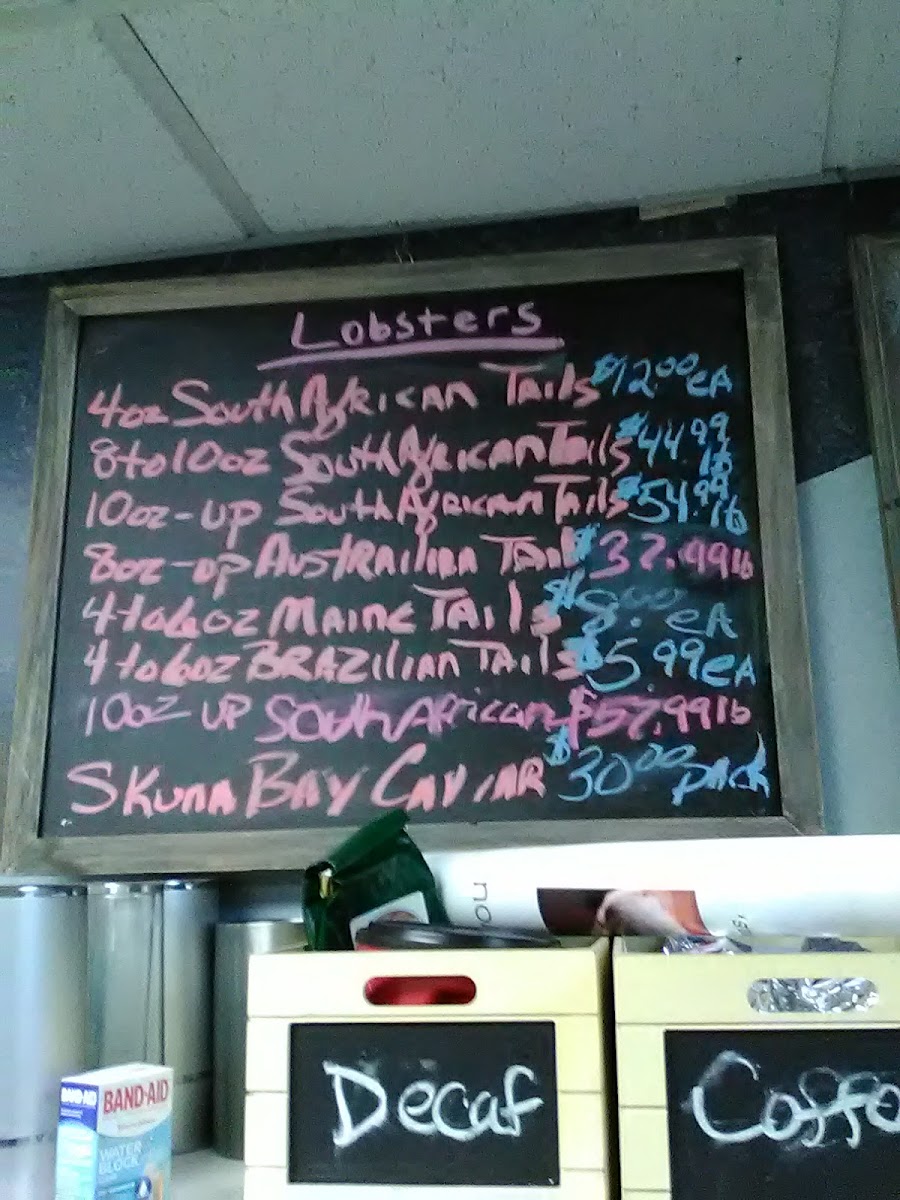 Lobsters
4oz South African Tails $12.00 eA
8to10oz South African Tails $44.99 lb
10oz-up South African Tails $54.99 lb
8oz-up Australian Tail $37.99 lb
4to6oz Maine Tails $18.00 eA
4to6oz Brazilian Tails $5.99 eA
10oz up South African $57.99 lb
Skuna Bay Caviar $30.00 pack
Decaf
BAND-AID
BAND-AID
WATER
BLOCK